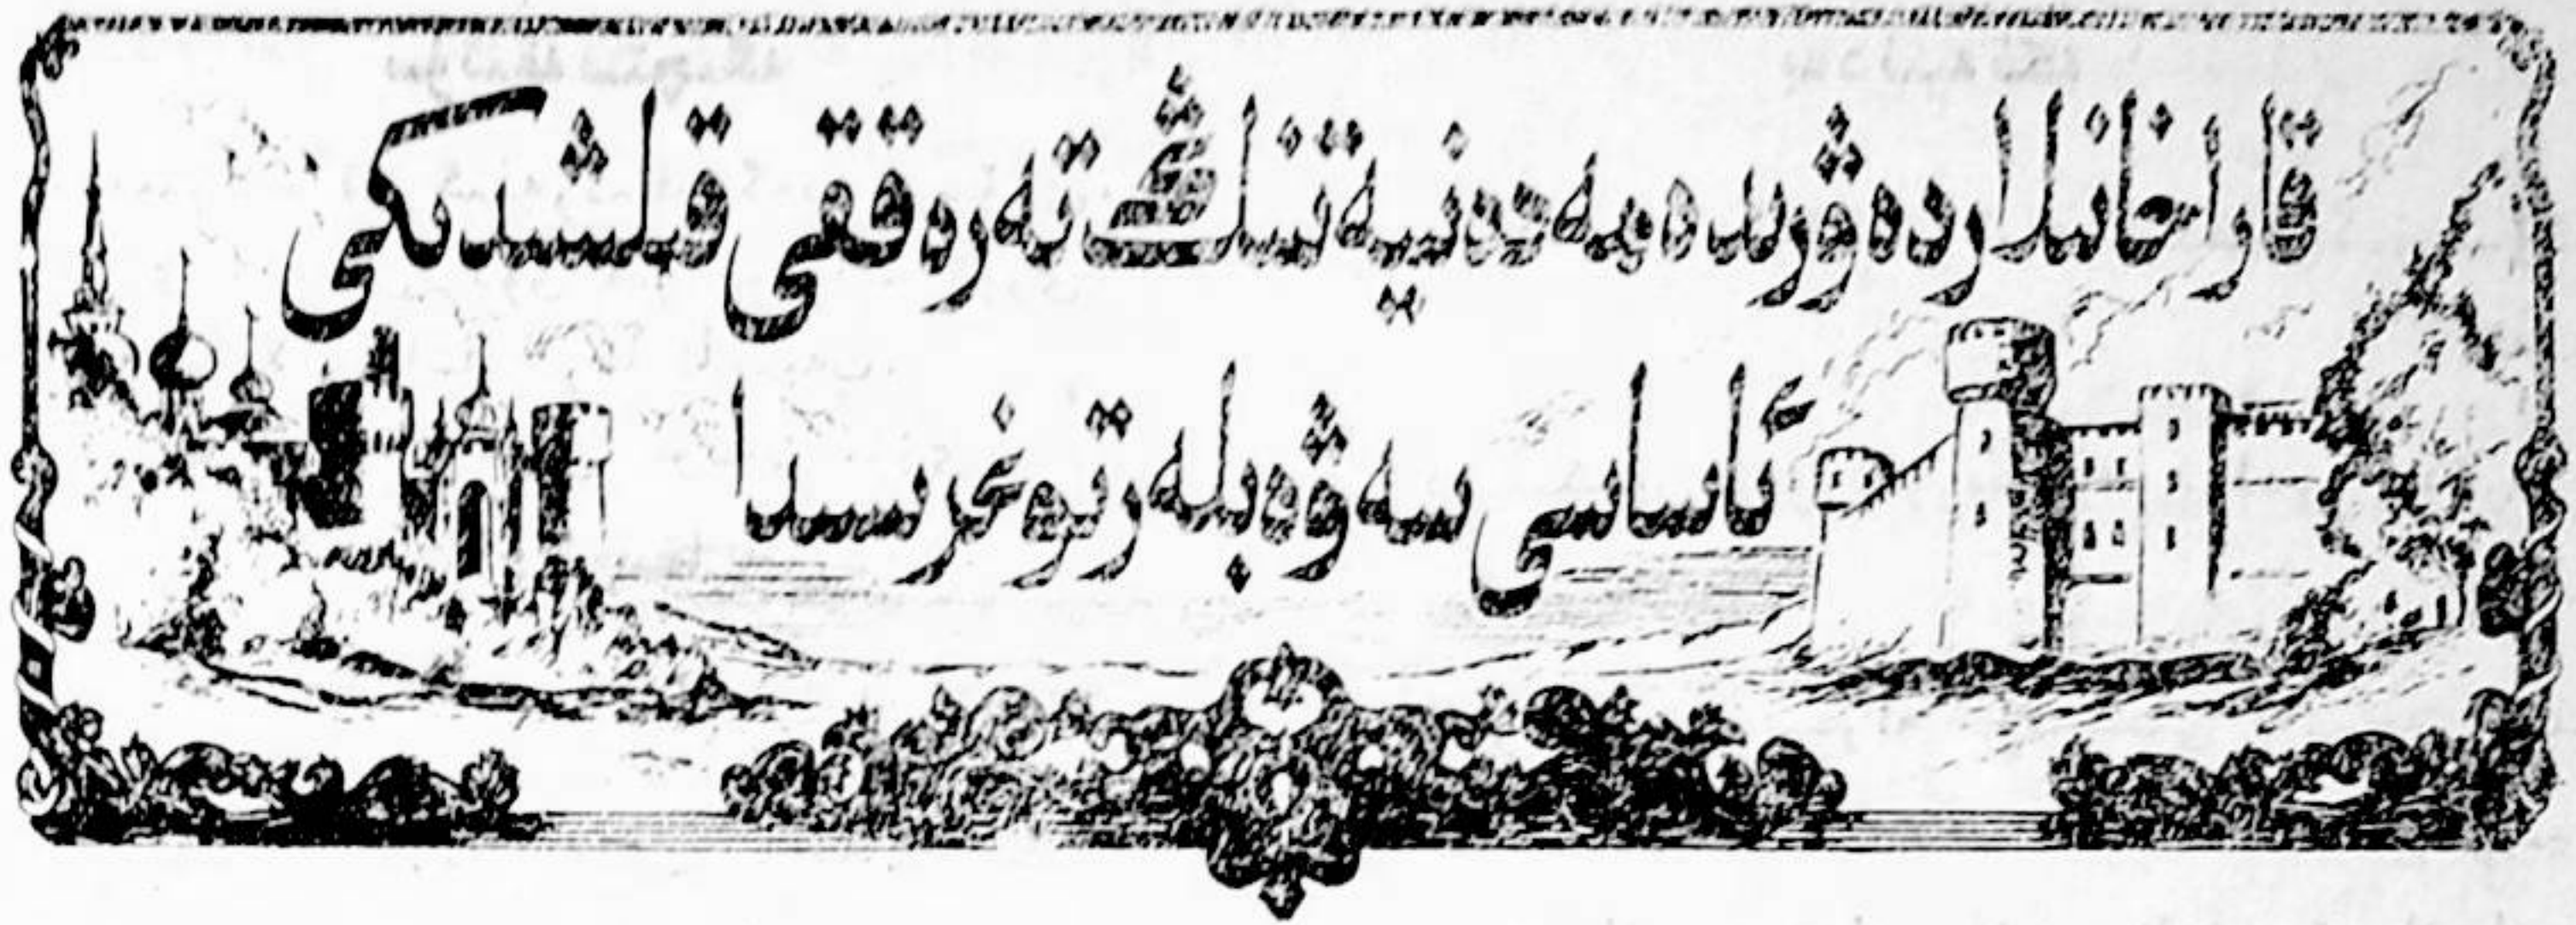 قاراخانىلار دەۋرىدە مەدەنىيەتنىڭ تەرەققىي قىلىشىدىكى
ئاساسىي سەۋەبلەر توغرىسىدا